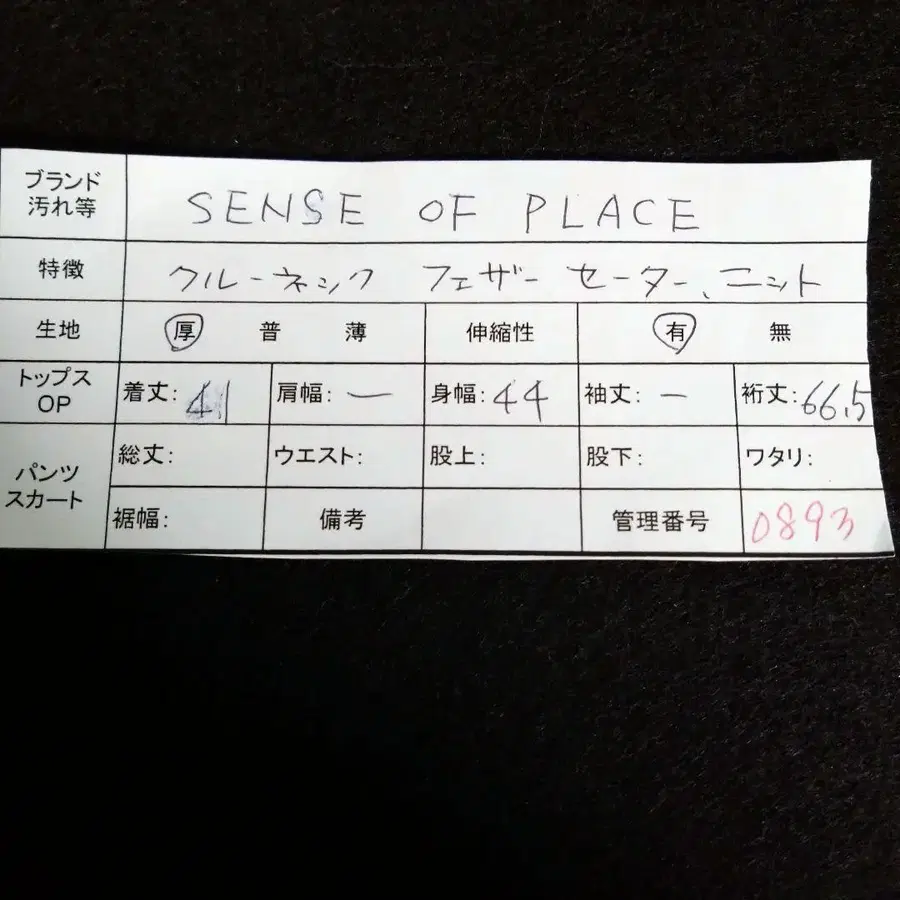 ブランド
汚れ等
SENSE OF PLACE
特徴 クルーネック フェザー セーター、ニット
生地 厚 普 薄 伸縮性 有 無
トップス
OP
着丈: 41 肩幅: ー 身幅: 44 袖丈: ー 裄丈: 66.5
パンツ
スカート
総丈: ウエスト: 股上: 股下: ワタリ:
裾幅: 備考 管理番号 0893